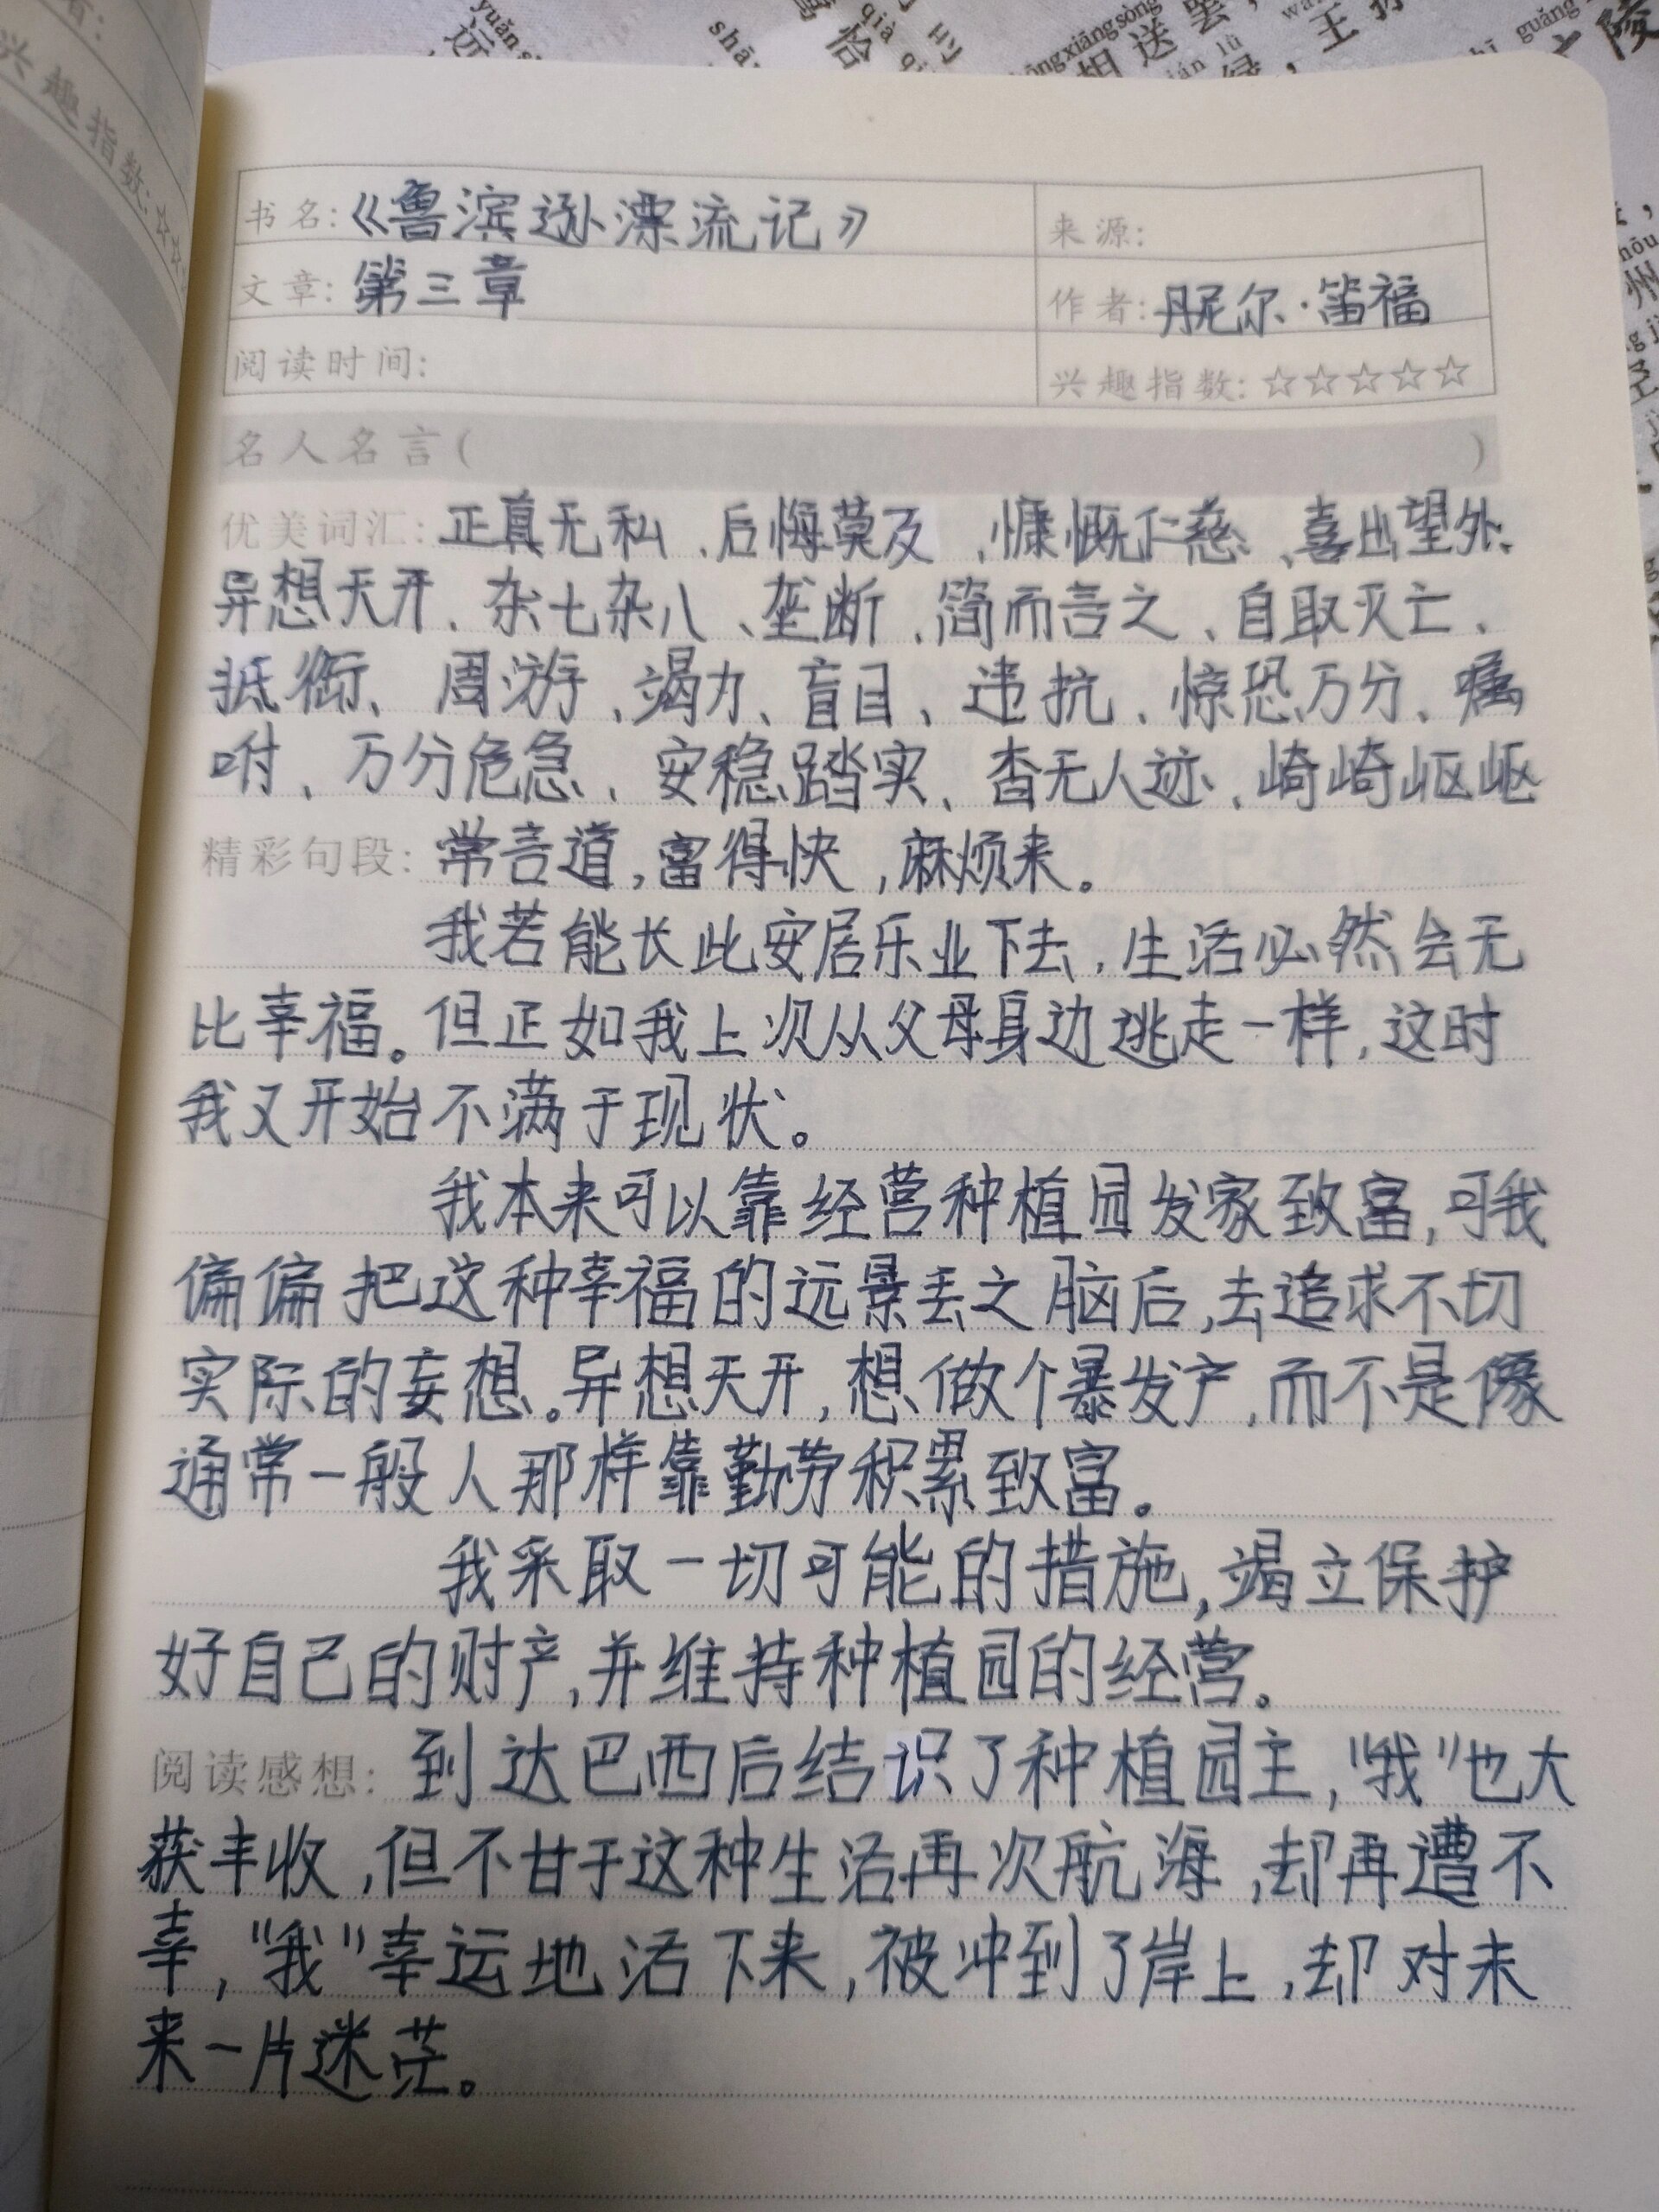 书名:《鲁滨逊漂流记》 来源:
文章: 第三章 作者: 丹尼尔·笛福
阅读时间: 兴趣指数: ☆☆☆☆☆
名人名言( )
优美词汇: 正真无私、后悔莫及、慷慨仁慈、喜出望外、
异想天开、杂七杂八、垄断、简而言之、自取灭亡、
抵御、周游、竭力、盲目、违抗、惊恐万分、嘱
咐、万分危急、安稳踏实、杳无人迹、崎崎岖岖
精彩句段: 常言道,富得快,麻烦来。
我若能长此安居乐业下去,生活必然会无
比幸福。但正如我上次从父母身边逃走一样,这时
我又开始不满于现状。
我本来可以靠经营种植园发家致富,可我
偏偏把这种幸福的远景丢之脑后,去追求不切
实际的妄想。异想天开,想做个暴发户,而不是像
通常一般人那样靠勤劳积累致富。
我采取一切可能的措施,竭立保护
好自己的财产,并维持种植园的经营。
阅读感想: 到达巴西后结识了种植园主,“我”也大
获丰收,但不甘于这种生活再次航海,却再遭不
幸,“我”幸运地活下来,被冲到了岸上,却对未
来一片迷茫。